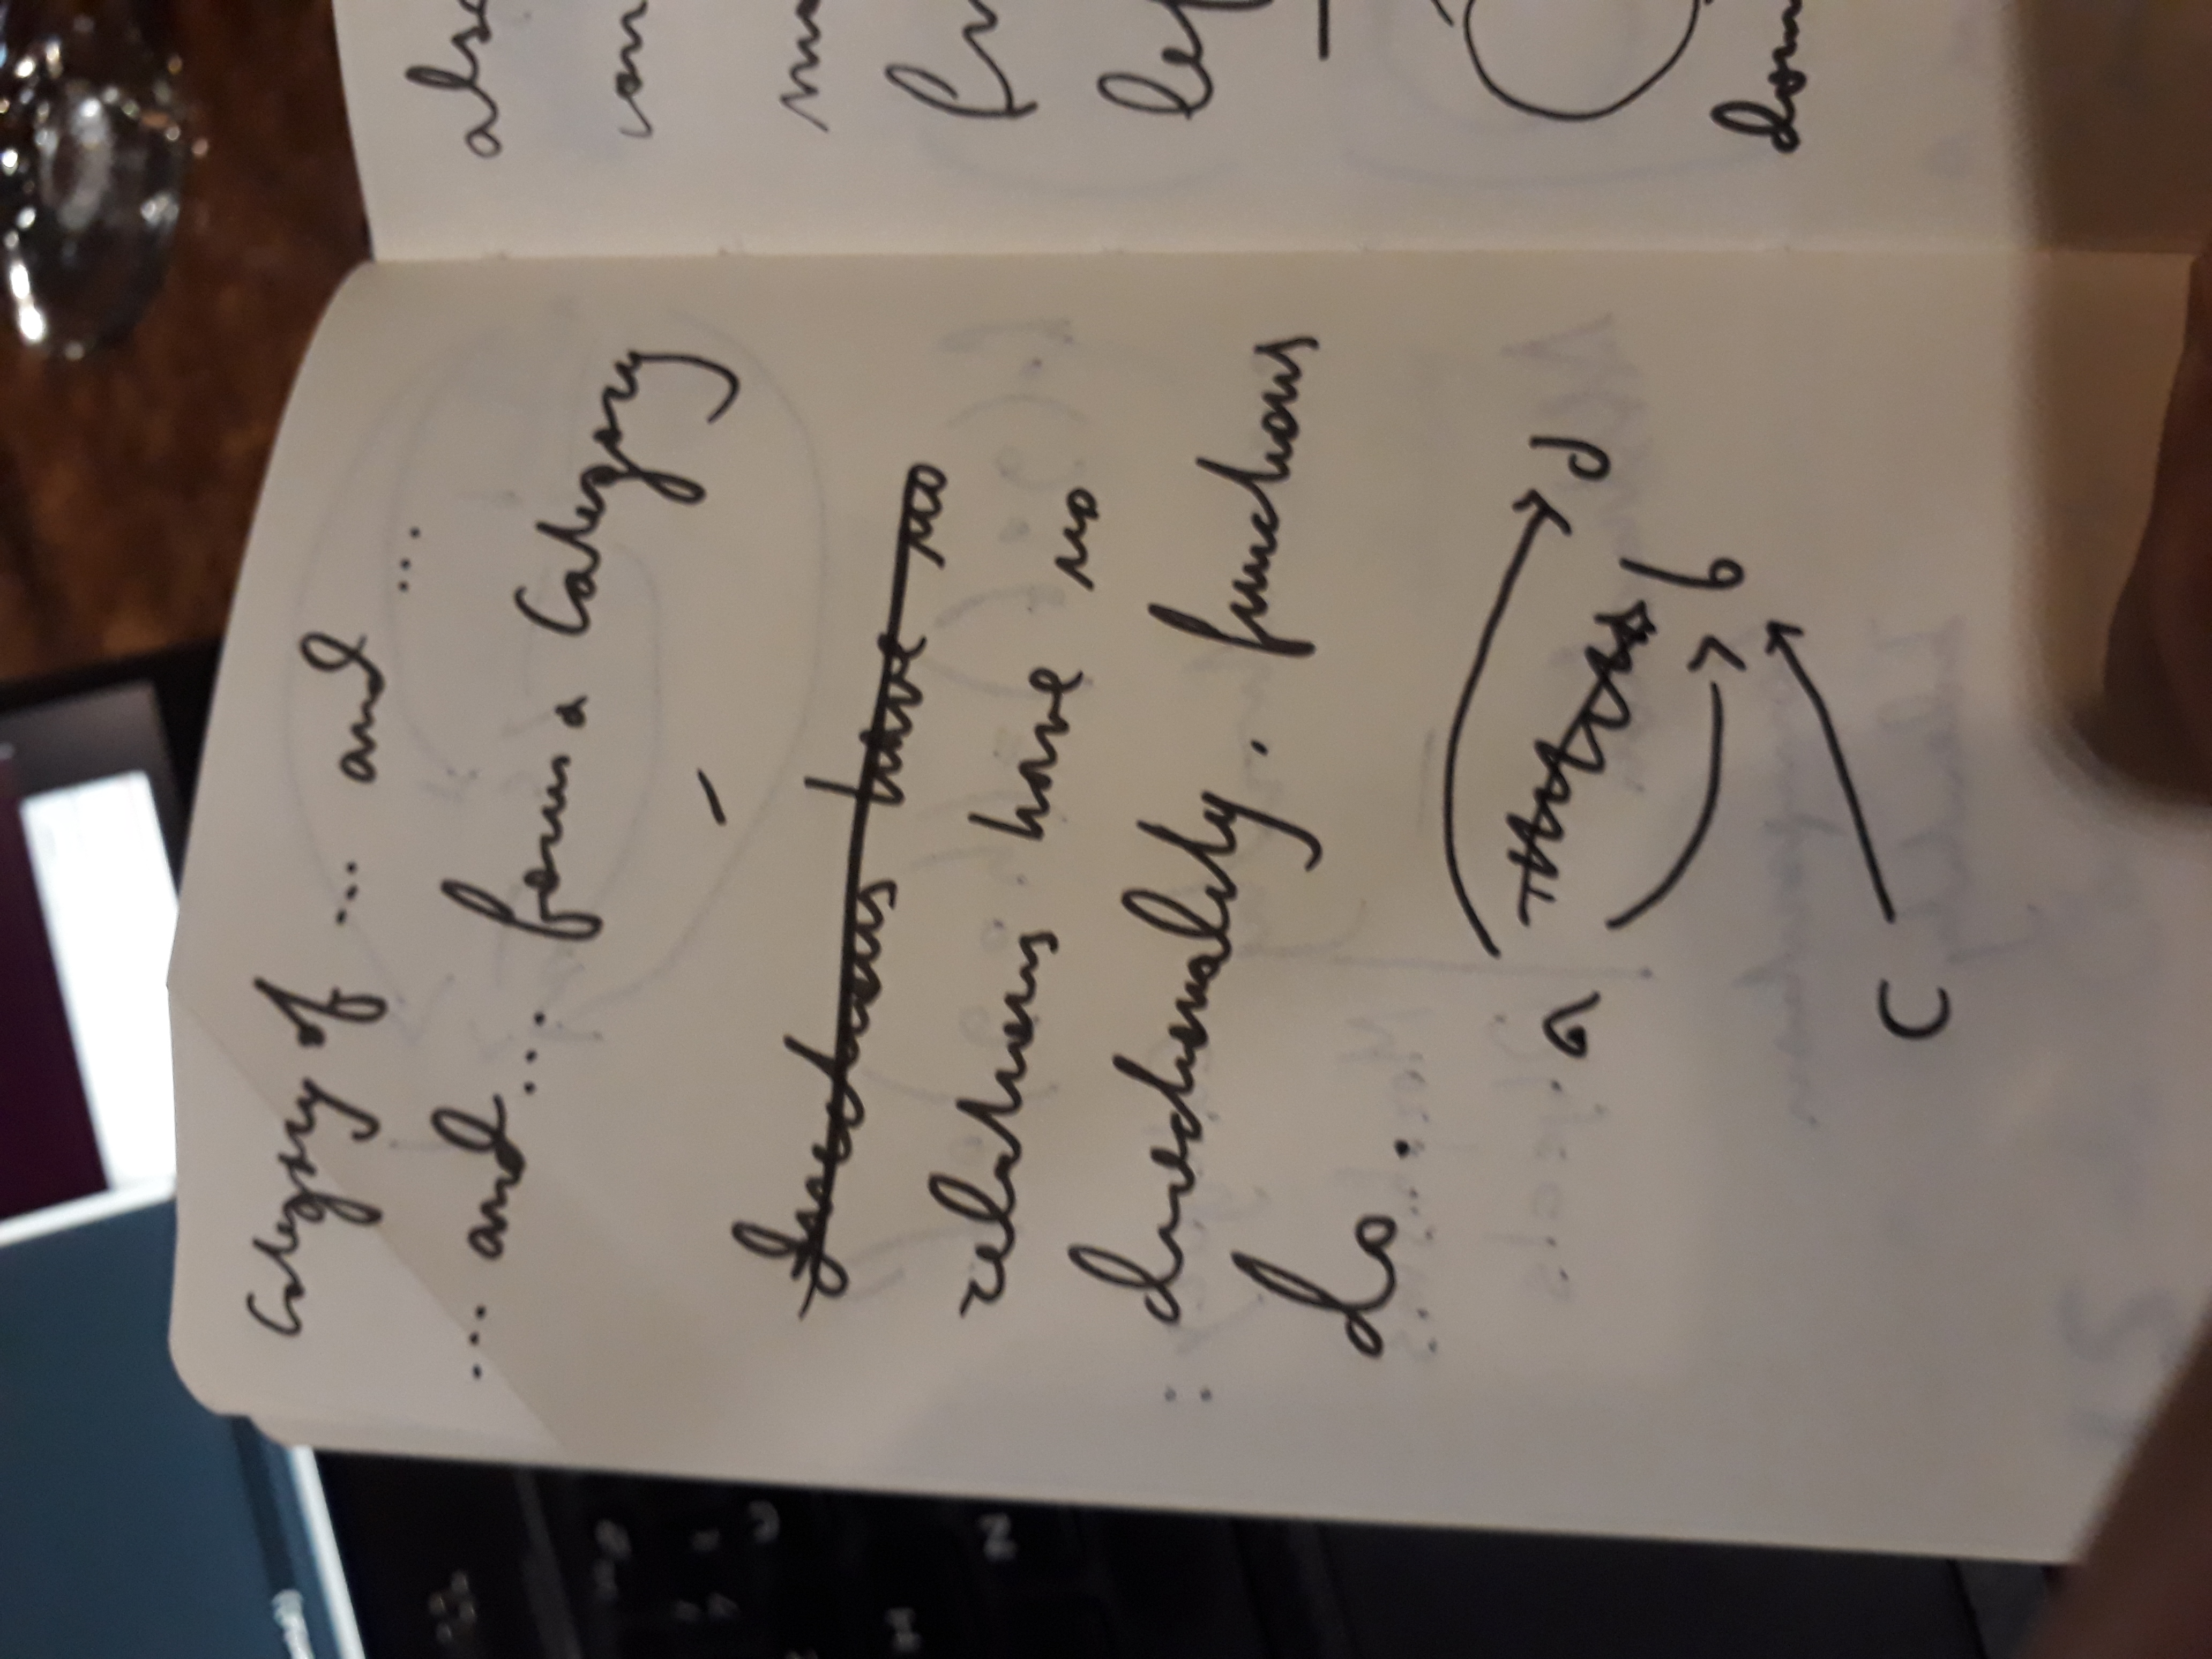 Category of ... and ...
... and ... forms a Category
functions have no
relations have no
: directionality. functions
do.
a
d
b
C
also
con
ma
fu
lef
dom